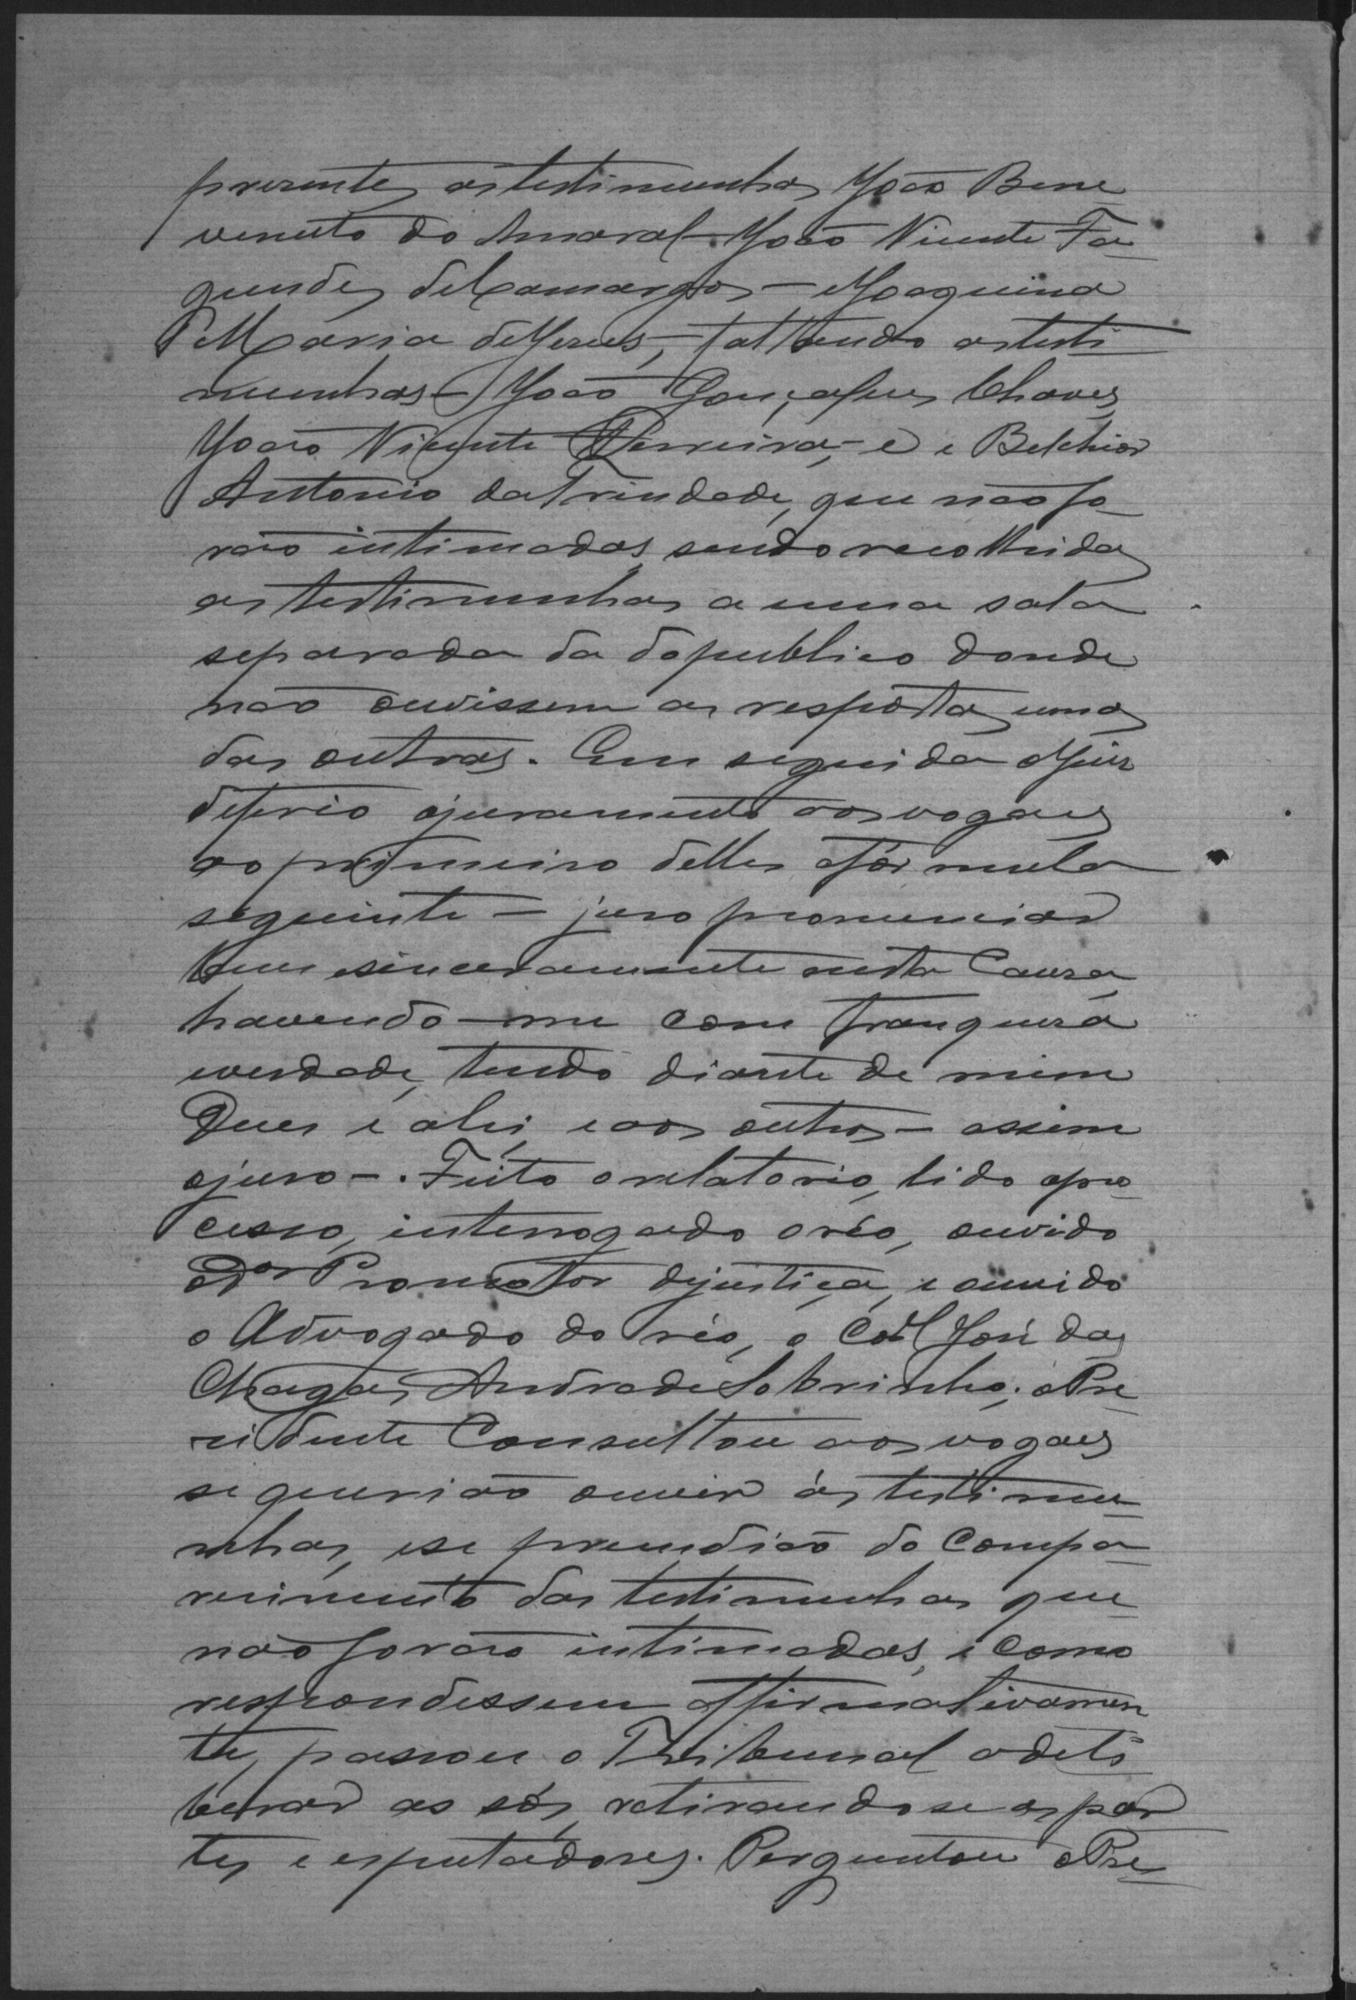 presentes as testimunhas João Bene
venuto do Amaral - João Vicente Fa-
gundes de Camargos - Joaquina
Maria de Jesus, faltando as testi
munhas - João Gonçalves Chaves,
João Vicente Ferreira, e e Belchior
Antonio da Trindade, que não fo-
rão intimadas, sendo recolhidas
as testimunhas a uma sala
separada da do publico donde
não ouvissem as respostas umas
das outras. Em seguida o Juiz
deferio o juramento aos vogaes
ao primeiro delles a fórmula
seguinte - juro pronunciar
bem e sinceramente nesta Causa
havendo-me com franquesa
e verdade, tendo diante de mim
Deus e a lei, e aos outros - assim
o juro -. Feito o relatorio, lido o pro-
cesso, interrogado o réo, ouvido
o Dor Promotor de justiça, e ouvido
o Advogado do réo, o Cel José das
Chagas Andrade Sobrinho; o Pre
sidente Consultou aos vogaes
se querião ouvir ás testimu-
nhas, e se prescindião do Compa-
recimento das testimunhas que
não forão intimadas, e como
respondessem affirmativamen
te, passou o Tribunal a deli
berar as sós, retirando se as par
tes e esputadores. Perguntou o Pre-